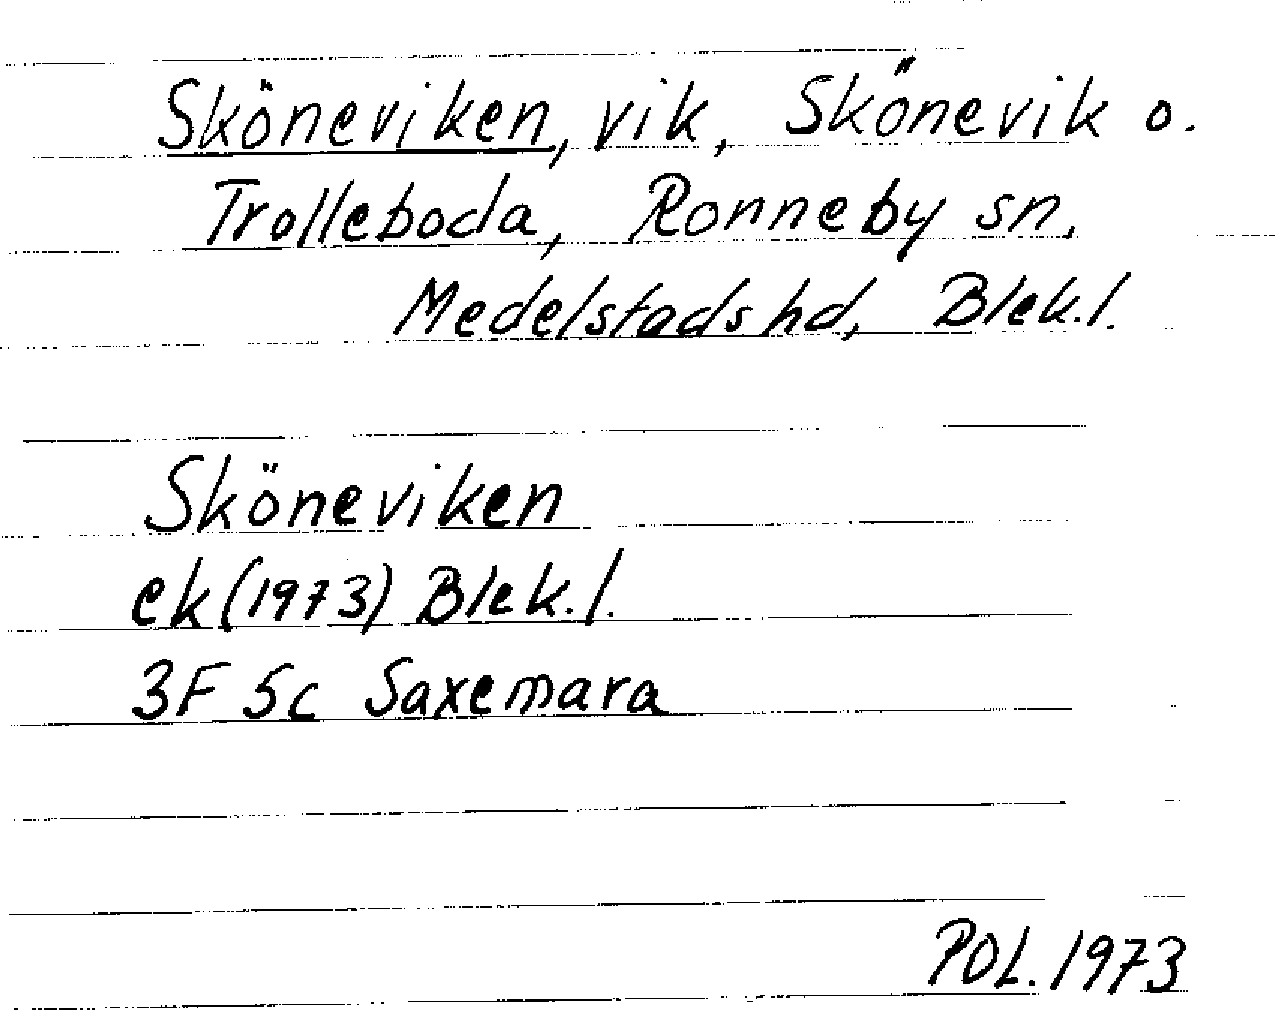 Sköneviken, vik, Skönevik o.
Trolleboda, Ronneby sn,
Medelstads hd, Blek.l.
Sköneviken
ek (1973) Blek.l.
3F 5c Saxemara
POL. 1973